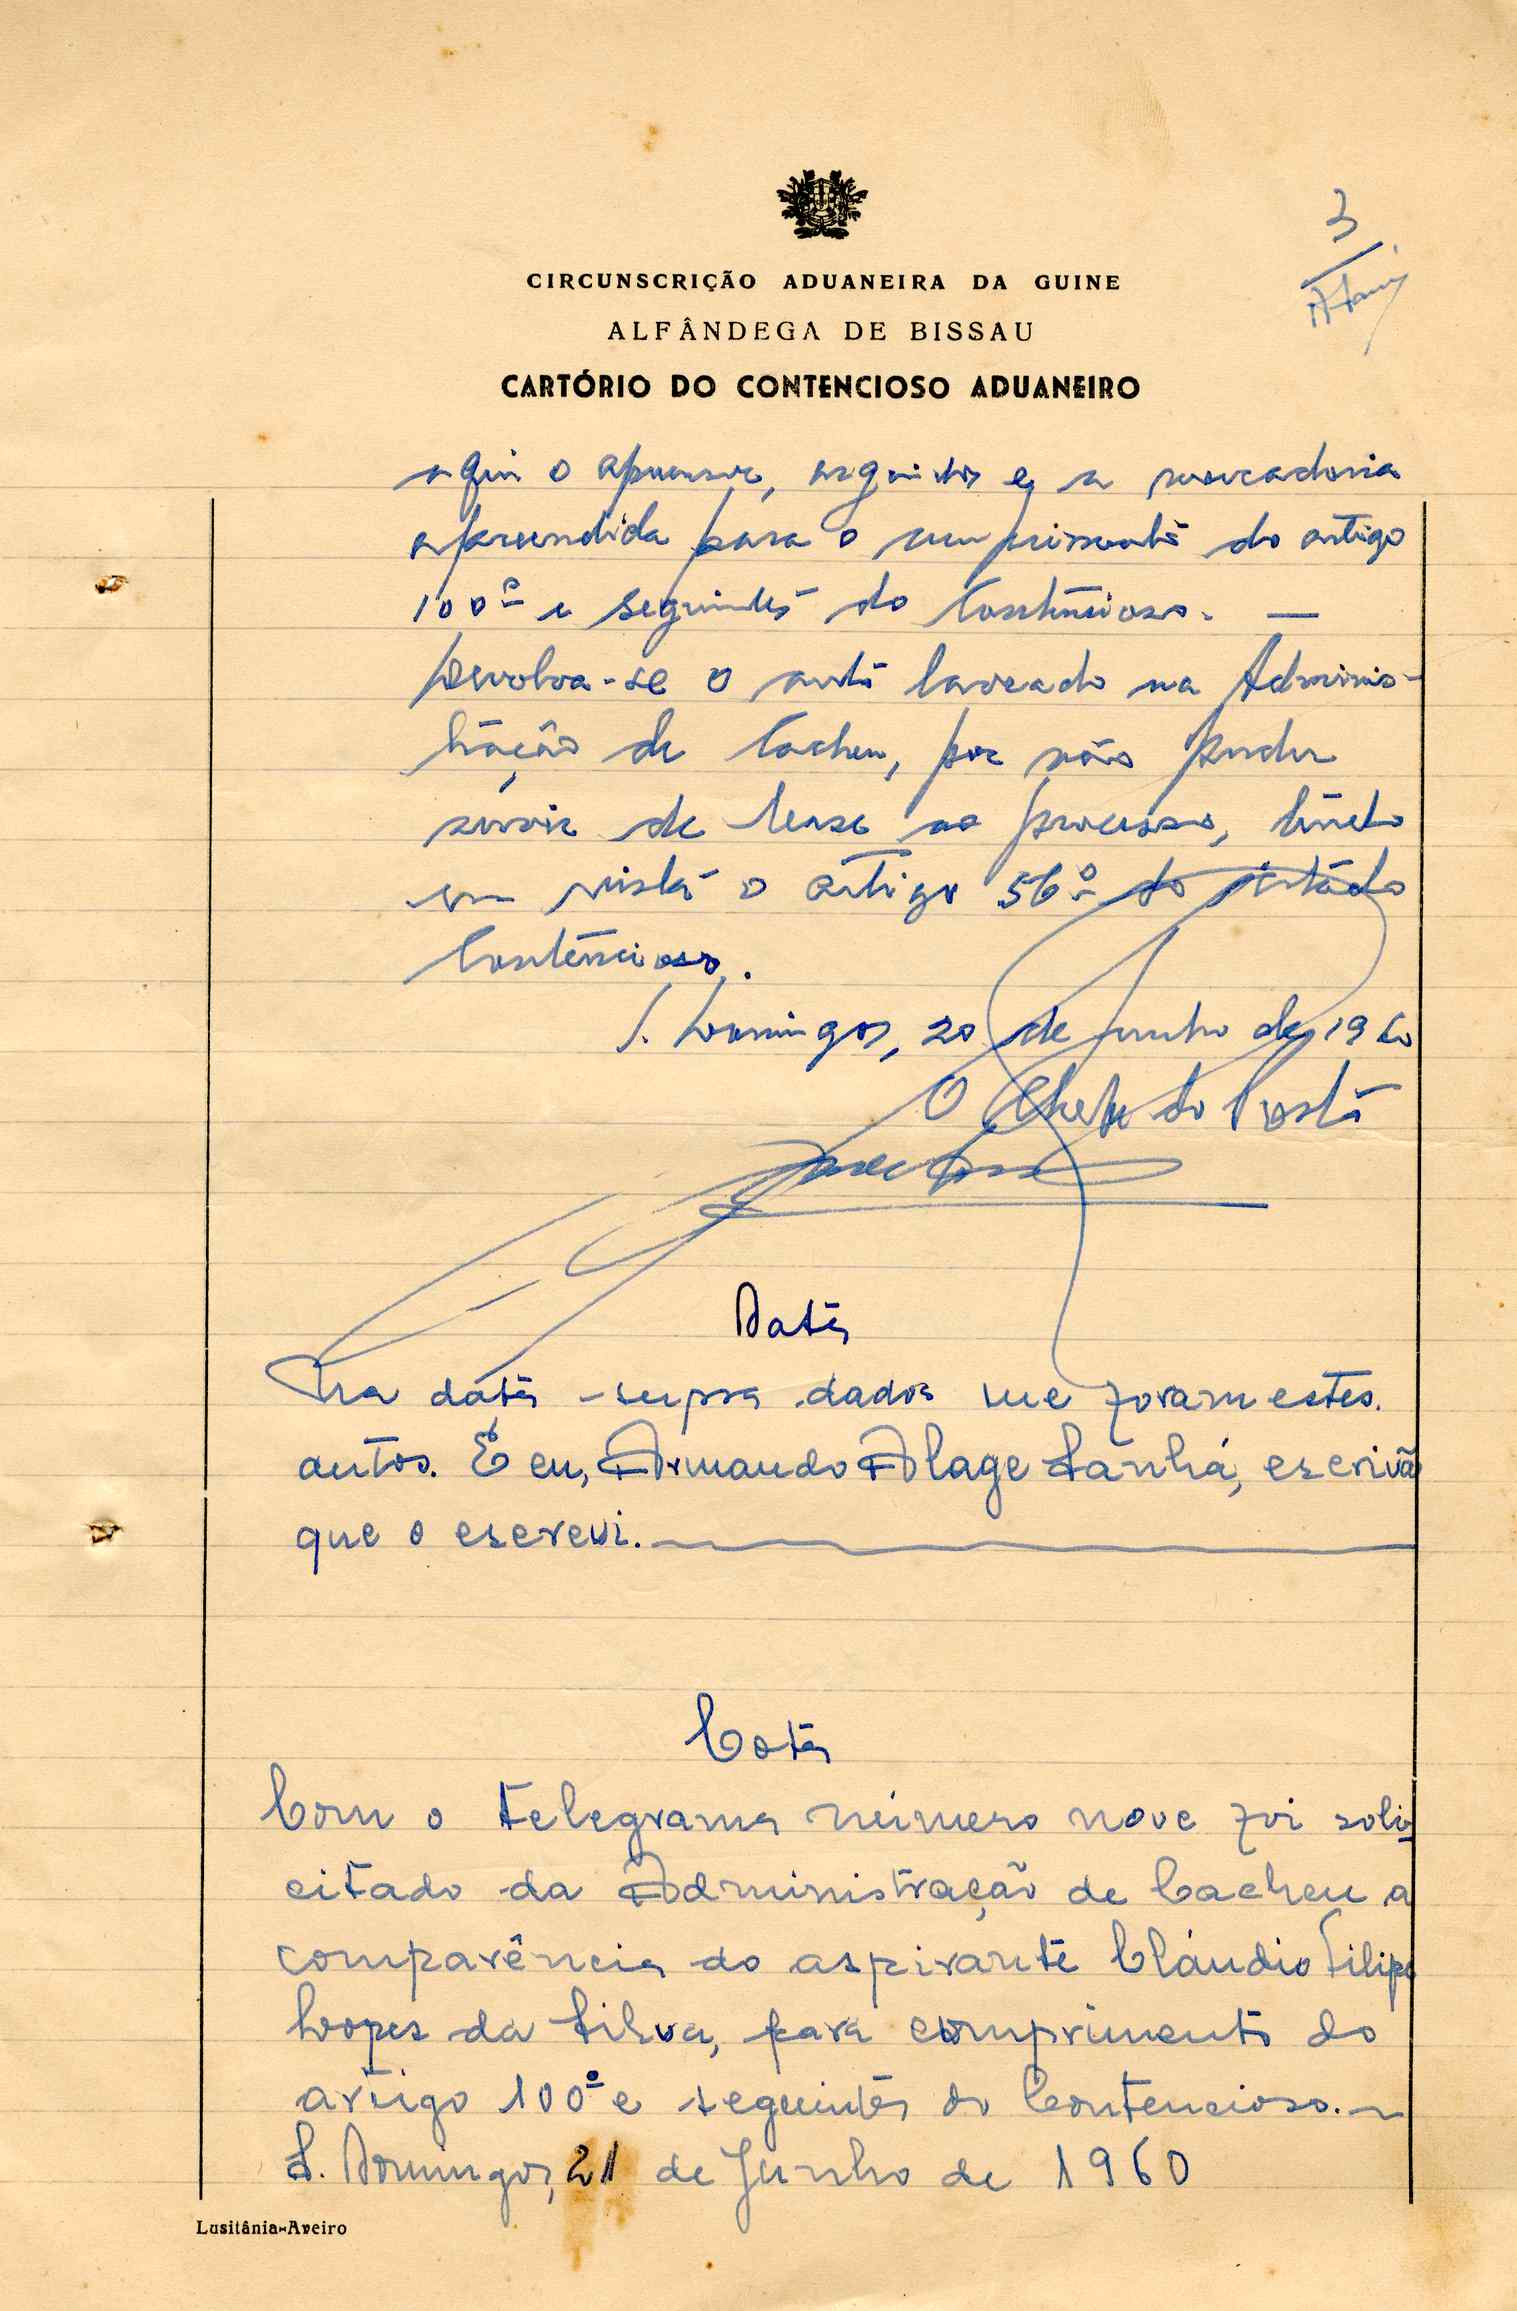 3
CIRCUNSCRIÇÃO ADUANEIRA DA GUINE
ALFÂNDEGA DE BISSAU
CARTÓRIO DO CONTENCIOSO ADUANEIRO
aqui o apreensor, arguidos e a mercadoria
apreendida para o cumprimento do artigo
100º e seguintes do Contencioso. —
Devolva-se o auto lavrado na Adminis-
tração de Cacheu, por não poder
servir de base ao processo, tendo
em vista o artigo 56º do citado
Contencioso.
S. Domingos, 20 de Junho de 1960
O Chefe do Posto
Data
Na data supra dados me foram estes
autos. E eu, Armando Alage Sanhá, escrivão
que o escrevi.
Cota
Com o telegrama número nove foi soli-
citado da Administração de Cacheu a
comparência do aspirante Cláudio Filipe
Lopes da Silva, para comprimento do
artigo 100º e seguintes do Contencioso.
S. Domingos, 21 de Junho de 1960
Lusitânia-Aveiro